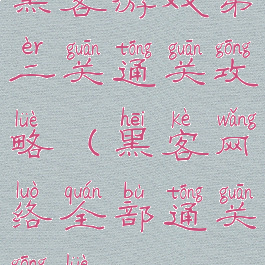 黑客游戏第
èr guān tōng guān gōng
二关通关攻
lüè hēi kè wǎng
略(黑客网
luò quán bù tōng guān
络全部通关
gōng lüè